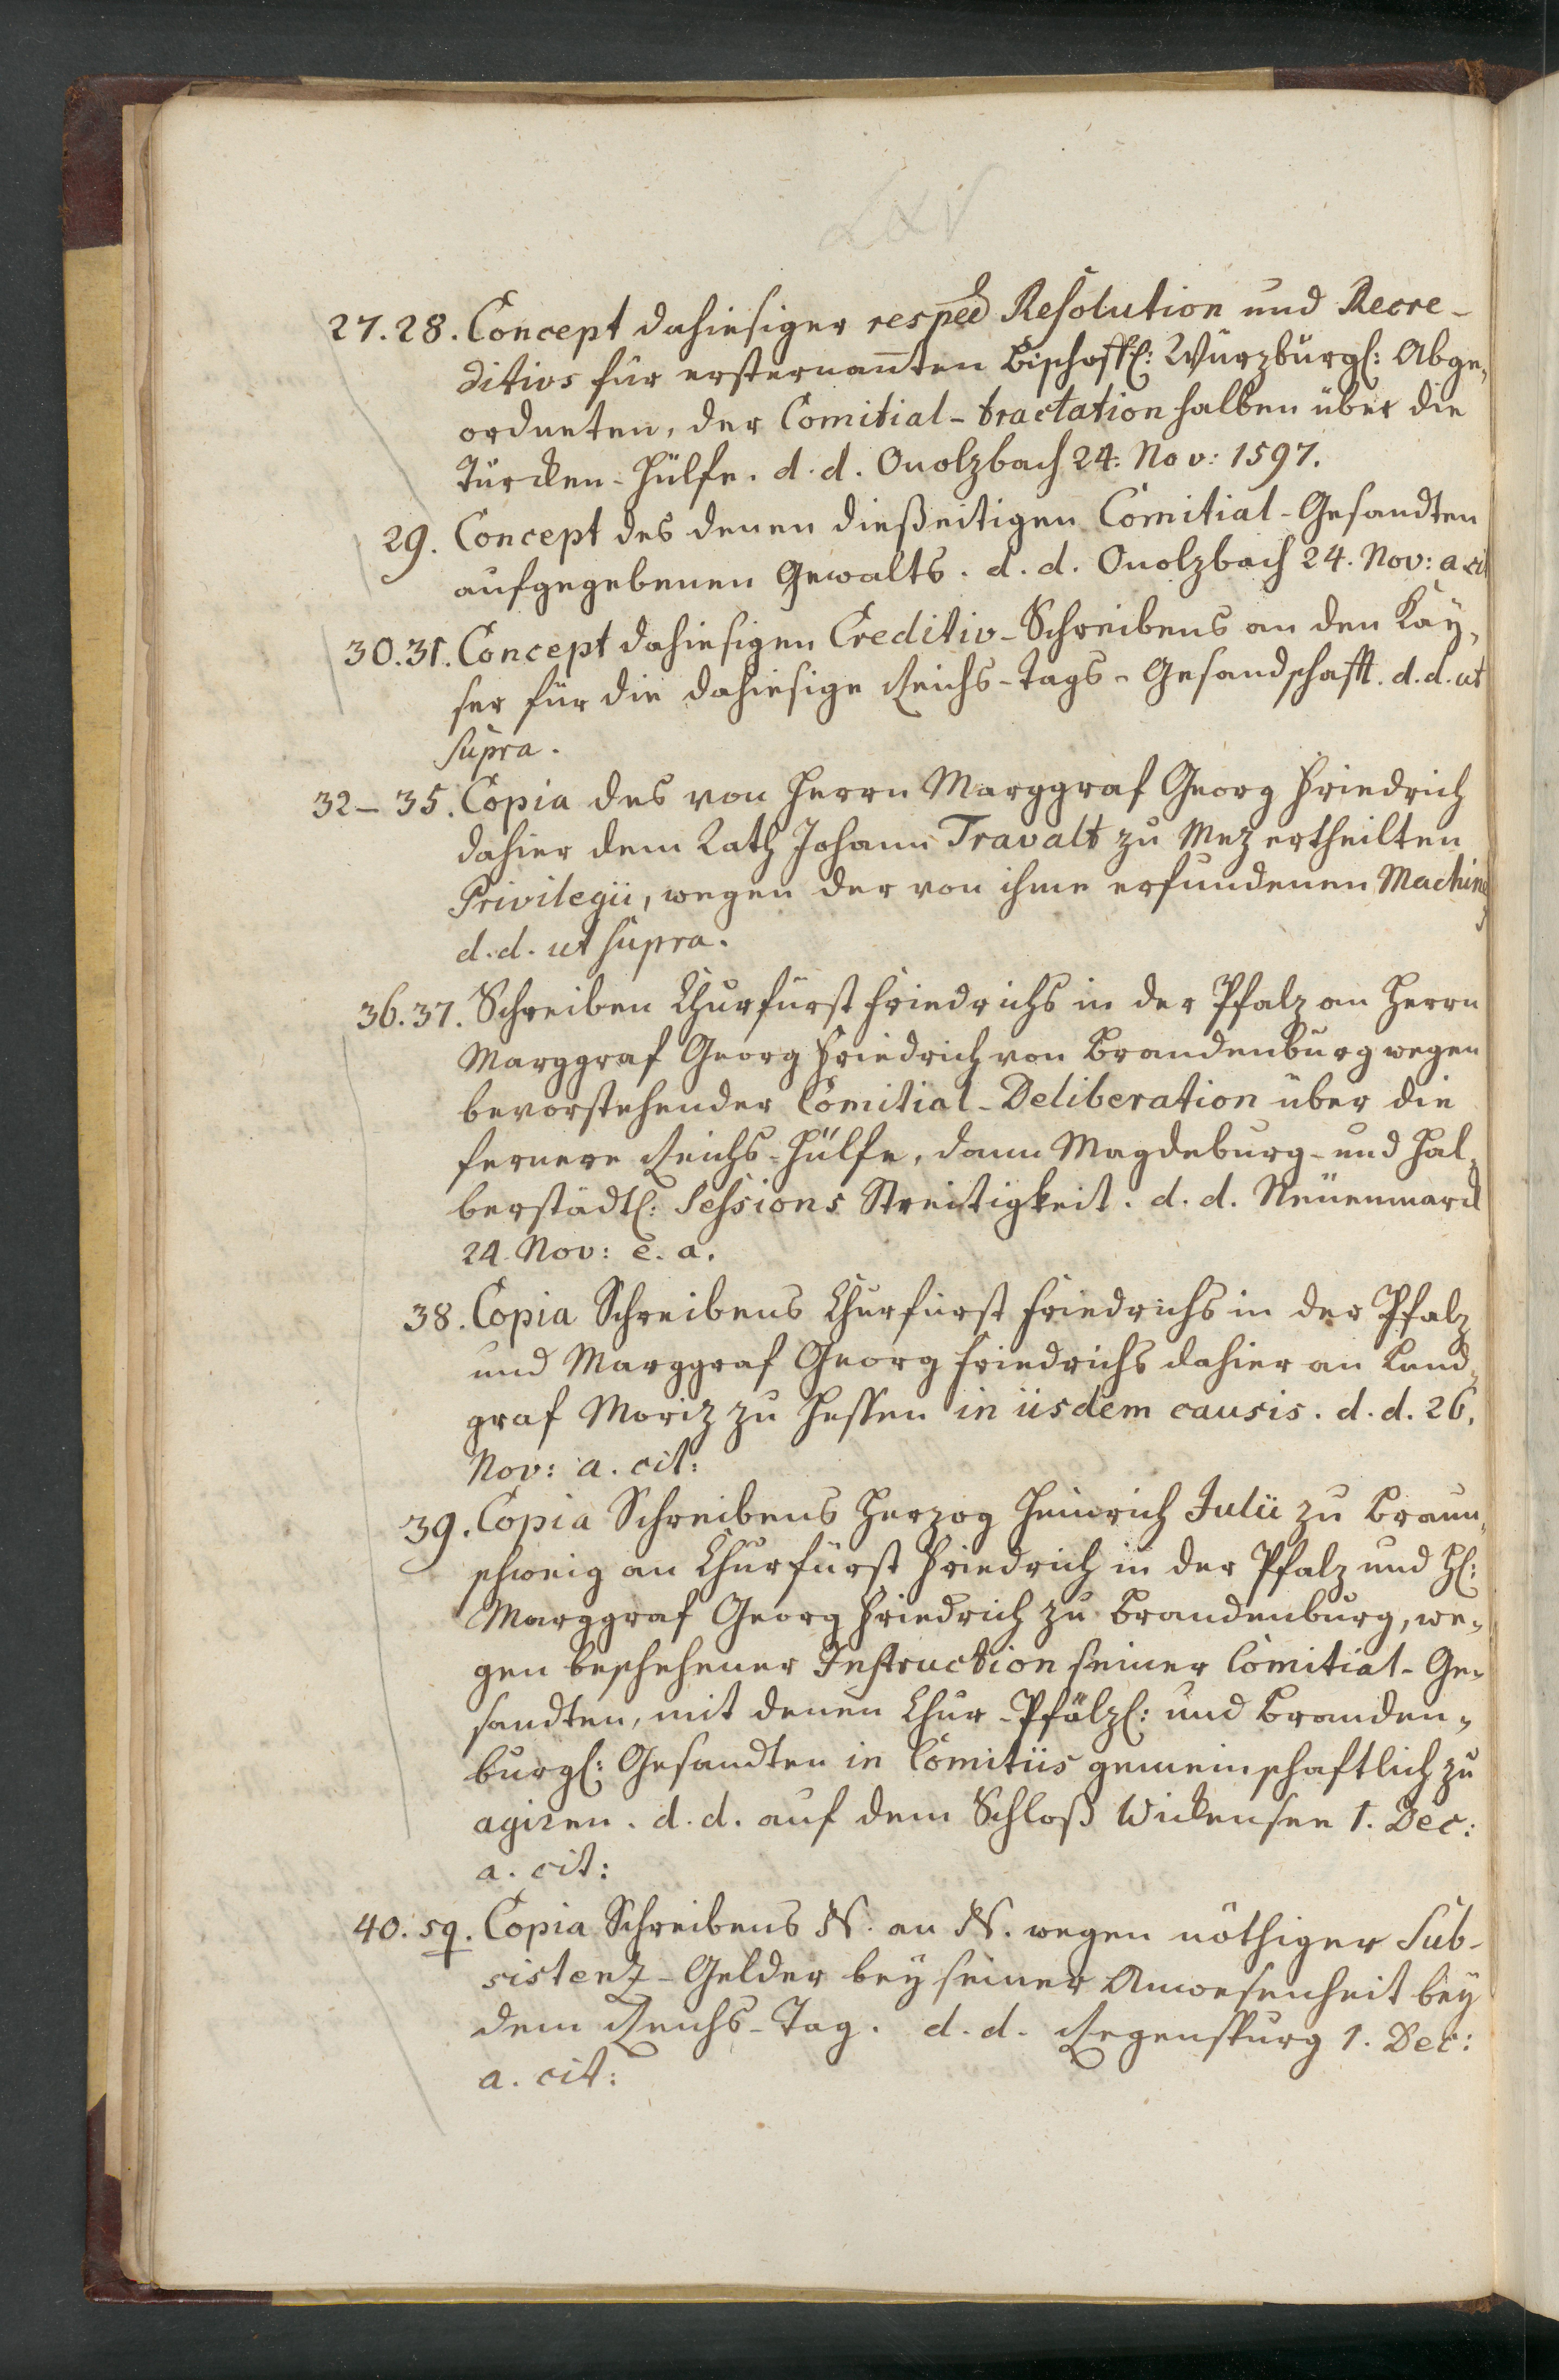 LXV
27. 28. Concept dahiesiger respec Resolution und Recre-
ditivs für ersternannten Bischoffl: Würzburgl: Abge-
ordneten, der Comitial-tractation halben über die
Türcken-Hülfe. d. d. Onolzbach 24. Nov: 1597.
29. Concept des denen dießeitigen Comitial-Gesandten
aufgegebenen Gewalts. d. d. Onolzbach 24. Nov: a. cit
30. 31. Concept dahiesigen Creditiv-Schreibens an den Kay-
ser für die dahiesige Reichs-Tags-Gesandschafft. d. d. ut
supra.
32-35. Copia des von Herrn Marggraf Georg Friedrich
dahier dem Rath Johann Travalt zu Mez ertheilten
Privilegii, wegen der von ihme erfundenen Machine
d. d. ut supra.
36. 37. Schreiben Churfürst Friedrichs in der Pfalz an Herrn
Marggraf Georg Friedrich von Brandenburg wegen
bevorstehender Comitial-Deliberation über die
fernere Reichs-Hülfe, dann Magdeburg- und Hal-
berstädtl: Sessions Streitigkeit. d. d. Neüenmarck
24. Nov: e. a.
38. Copia Schreibens Churfürst Friedrichs in der Pfalz
und Marggraf Georg Friedrichs dahier an Land-
graf Moriz zu Hessen in iisdem causis. d. d. 26.
Nov: a. cit:
39. Copia Schreibens Herzog Heinrich Julii zu Braun-
schweig an Churfürst Friedrich in der Pfalz und H:
Marggraf Georg Friedrich zu Brandenburg, we-
gen beschehener Instruction seiner Comitial-Ge-
sandten, mit denen Chur-Pfälzl: und Branden-
burgl: Gesandten in Comitiis gemeinschaftlich zu
agiren. d. d. auf dem Schloß Wickensen 1. Dec:
a. cit:
40. sq. Copia Schreibens N. an N. wegen nöthiger Sub-
sistenz-Gelder bey seiner Anwesenheit bey
dem Reichs-Tag. d. d. Regenspurg 1. Dec:
a. cit: